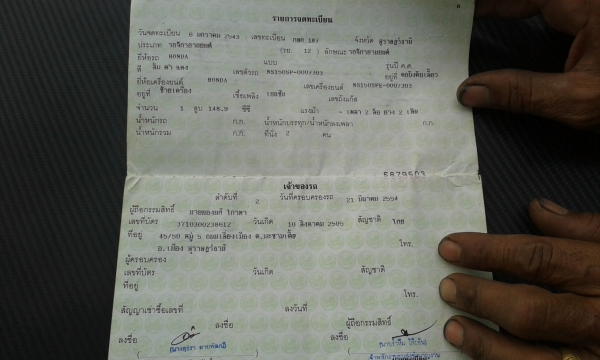 รายการจดทะเบียน
วันจดทะเบียน 6 มกราคม 2543 เลขทะเบียน กตก 187 จังหวัด สุราษฎร์ธานี
ประเภท รถจักรยานยนต์ (รย. 12 ) ลักษณะ รถจักรยานยนต์
ยี่ห้อรถ HONDA แบบ รุ่นปี ค.ศ.
สี ดำ แดง เลขตัวรถ NS150SP-0007303 อยู่ที่
ยี่ห้อเครื่องยนต์ HONDA เลขเครื่องยนต์ NS150SPE-0007303
อยู่ที่ ซ้ายเครื่อง เชื้อเพลิง เบนซิน เลขถังแก๊ส
จำนวน 1 สูบ 148.9 ซีซี แรงม้า - เพลา 2 ล้อ ยาง 2 เส้น
น้ำหนักรถ ก.ก. น้ำหนักบรรทุก/น้ำหนักลงเพลา ก.ก.
น้ำหนักรวม ก.ก. ที่นั่ง 2 คน
5879503
เจ้าของรถ
ลำดับที่ 2 วันที่ครอบครองรถ 21 มีนาคม 2554
ผู้ถือกรรมสิทธิ์
เลขที่บัตร 3710300238612 วันเกิด 10 สิงหาคม 2505 สัญชาติ ไทย
ที่อยู่ 45/50 หมู่ 5 ต.มะขามเตี้ย
อ.เมือง สุราษฎร์ธานี โทร.
ผู้ครอบครอง
เลขที่บัตร วันเกิด สัญชาติ
ที่อยู่ โทร.
สัญญาเช่าซื้อเลขที่ ลงวันที่
ลงชื่อ ผู้ถือกรรมสิทธิ์
ลงชื่อ ลงชื่อ